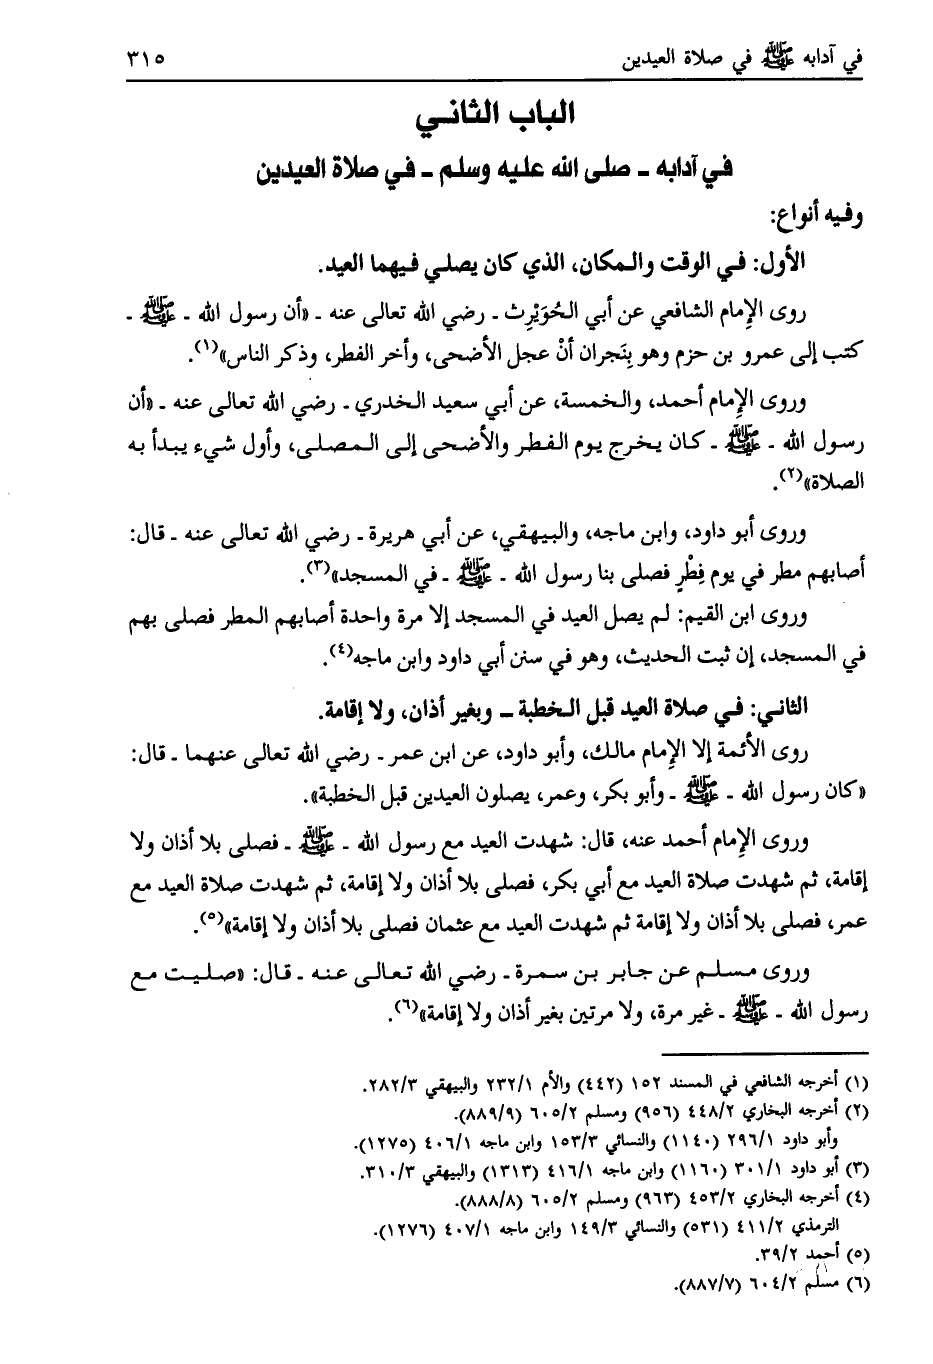 في آدابه ﷺ في صلاة العيدين ٣١٥
الباب الثاني
في آدابه ـ صلى الله عليه وسلم ـ في صلاة العيدين
وفيه أنواع:
الأول: في الوقت والمكان، الذي كان يصلي فيهما العيد.
روى الإمام الشافعي عن أبي الحُوَيْرِث ـ رضي الله تعالى عنه ـ «أن رسول الله ـ ﷺ ـ
كتب إلى عمرو بن حزم وهو بِنَجران أنْ عجل الأضحى، وأخر الفطر، وذكر الناس»(١).
وروى الإمام أحمد، والخمسة، عن أبي سعيد الخدري ـ رضي الله تعالى عنه ـ «أن
رسول الله ـ ﷺ ـ كان يخرج يوم الفطر والأضحى إلى المصلى، وأول شيء يبدأ به
الصلاة»(٢).
وروى أبو داود، وابن ماجه، والبيهقي، عن أبي هريرة ـ رضي الله تعالى عنه ـ قال:
أصابهم مطر في يوم فِطْرٍ فصلى بنا رسول الله ـ ﷺ ـ في المسجد»(٣).
وروى ابن القيم: لم يصل العيد في المسجد إلا مرة واحدة أصابهم المطر فصلى بهم
في المسجد، إن ثبت الحديث، وهو في سنن أبي داود وابن ماجه(٤).
الثاني: في صلاة العيد قبل الخطبة ـ وبغير أذان، ولا إقامة.
روى الأئمة إلا الإمام مالك، وأبو داود، عن ابن عمر ـ رضي الله تعالى عنهما ـ قال:
«كان رسول الله ـ ﷺ ـ وأبو بكر، وعمر، يصلون العيدين قبل الخطبة».
وروى الإمام أحمد عنه، قال: شهدت العيد مع رسول الله ـ ﷺ ـ فصلى بلا أذان ولا
إقامة، ثم شهدت صلاة العيد مع أبي بكر، فصلى بلا أذان ولا إقامة، ثم شهدت صلاة العيد مع
عمر، فصلى بلا أذان ولا إقامة ثم شهدت العيد مع عثمان فصلى بلا أذان ولا إقامة»(٥).
وروى مسلم عن جابر بن سمرة ـ رضي الله تعالى عنه ـ قال: «صليت مع
رسول الله ـ ﷺ ـ غير مرة، ولا مرتين بغير أذان ولا إقامة»(٦).
(١) أخرجه الشافعي في المسند ١٥٢ (٤٤٢) والأم ٢٣٢/١ والبيهقي ٢٨٢/٣.
(٢) أخرجه البخاري ٤٤٨/٢ (٩٥٦) ومسلم ٦٠٥/٢ (٨٨٩/٩).
وأبو داود ٢٩٦/١ (١١٤٠) والنسائي ١٥٣/٣ وابن ماجه ٤٠٦/١ (١٢٧٥).
(٣) أبو داود ٣٠١/١ (١١٦٠) وابن ماجه ٤١٦/١ (١٣١٣) والبيهقي ٣١٠/٣.
(٤) أخرجه البخاري ٤٥٣/٢ (٩٦٣) ومسلم ٦٠٥/٢ (٨٨٨/٨).
الترمذي ٤١١/٢ (٥٣١) والنسائي ١٤٩/٣ وابن ماجه ٤٠٧/١ (١٢٧٦).
(٥) أحمد ٣٩/٢.
(٦) مسلم ٦٠٤/٢ (٨٨٧/٧).